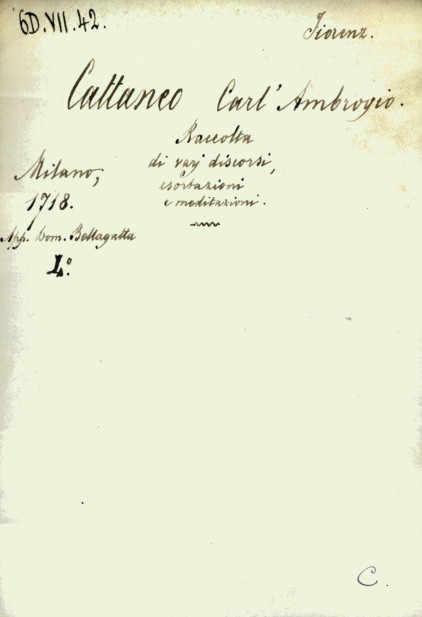 6D.VII.42.
Fiorenz.
Cattaneo Carl' Ambrogio.
Raccolta
di varj discorsi,
esortazioni
e meditazioni.
Milano,
1718.
App. Dom. Bellagatta
L.º
C.